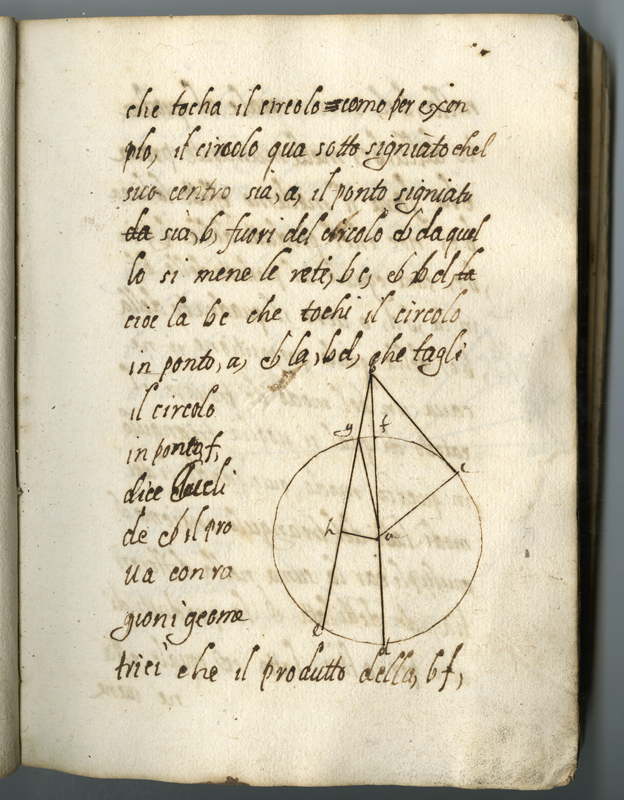 che tocha il circolo como per exen
plo, il circolo qua sotto signiato chel
suo centro sia, a, il ponto signiato
da sia, b, fuori del circolo & da quel
lo si mene le reti, bc, & bd, la
cioe la bc che tochi il circolo
in ponto, a, & la, bd, che tagli
il circolo
in ponto f,
dice Eucli
de & il pro
va con ra
gioni geome
trici che il produtto della, bf,
b
g f
c
h a
e
d